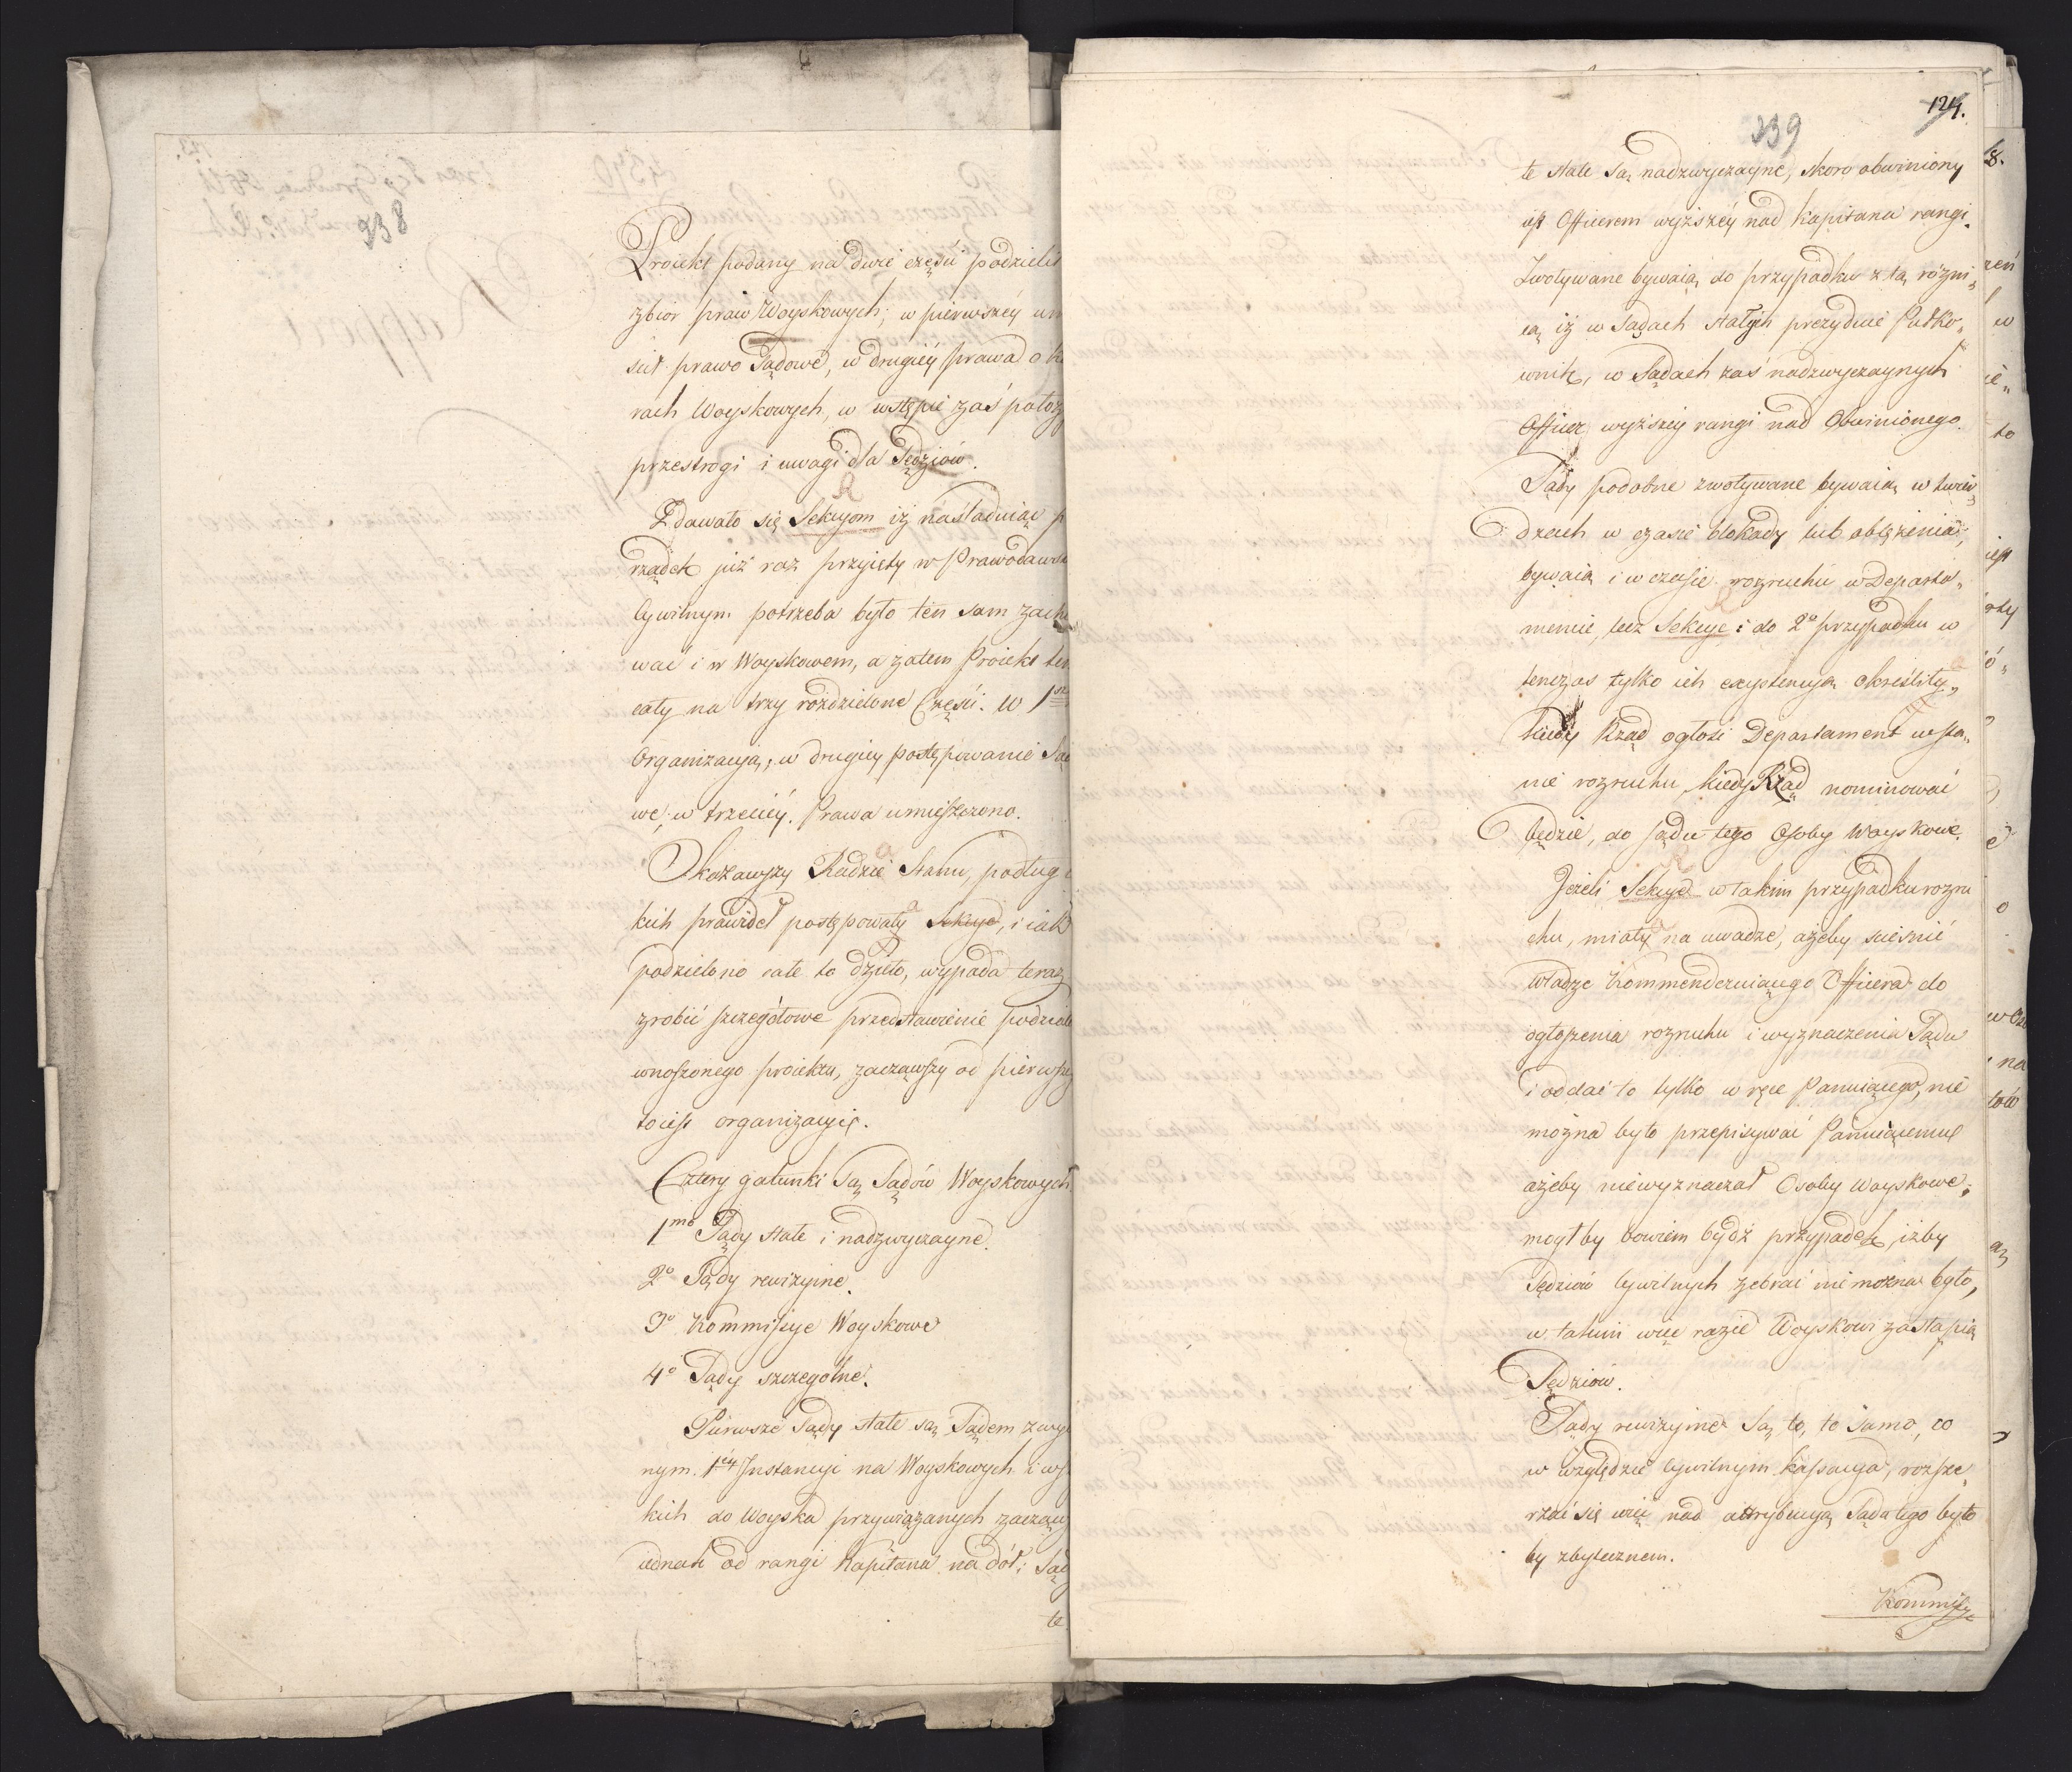 238
Proiekt podany na dwie części podzielił
zbior praw Woyskowych; w pierwszéy um
ścił prawo Sądowe, w drugiéy prawa o ka
rach Woyskowych, w wstępie zaś położy
przestrogi i uwagi dla Sędziów.
Zdawało się Sekcyom iż naśladuiąc p
rządek już raz przyięty w Prawodaws
Cywilnym potrzeba było ten sam zach
wać i w Woyskowem, a zatem Proiekt ten
cały na trzy rozdzielone Części. w 1
Organizacyą, w drugiey postępowanie Są
we, w trzeciéy Prawa umieszczono.
Okazawszy Radzie Stanu, podług
kich prawideł postępowały Sekcye, i iak
podzielono całe to dzieło, wypada teraz
zrobić szczegółowe przedstawienie podziału
wnoszonego proiektu, zacząwszy od pierwszéy
toiest organizacyi.
Cztery gatunki są Sądów Woyskowych
1mo Sądy stałe i nadzwyczayne.
2o Sądy rewizyine.
3o Kommissye Woyskowe
4o Sądy szczególne.
Pierwsze Sądy stałe są Sądem zwy
nym 1éy Instancyi na Woyskowych i ws
kich do Woyska przywiązanych zacząw
iednak od rangi Kapitana na dół; Sąd
te
124.
239
te stałe są nadzwyczayne, skoro obwiniony
iest Officerem wyższéy nad Kapitana rangi.
Zwoływane bywaią do przypadku z tą różni„
cą iż w Sądach stałych prezyduie Pułko„
wnik, w Sądach zaś nadzwyczaynych
Officer wyższéy rangi nad Obwinionego.
Sądy podobne zwoływane bywaią w twier„
dzach w czasie blokady lub oblężenia,
bywaią i w czasie rozruchu w Departa„
mencie, lecz Sekcye i do 2o przypadku w
tenczas tylko ich exystencyą określiły,
kiedy Rząd ogłosi Departament w sta„
nie rozruchu, kiedy Rząd nominować
będzie, do sądu tego Osoby Woyskowe.
Jeżeli Sekcye w takim przypadku rozru
chu, miały na uwadze, ażeby ścieśnić
władze Kommenderuiącego Officera do
ogłoszenia rozruhu i wyznaczenia Sądu
i oddać to tylko w ręce Panuiącego, nie
można było przepisywać Panuiącemu
ażeby niewyznaczał Osoby Woyskowe;
mogłby bowiem bydź przypadek, iżby
Sędziów Cywilnych zebrać nie można było,
w takim więc razie Woyskowi zastąpią
Sędziów.
Sądy rewizyine są to, to samo, co
w względzie Cywilnym kassacya, rozsze„
rzać się więc nad attrybucyą Sądu tego było
by zbytecznem.
Kommissye